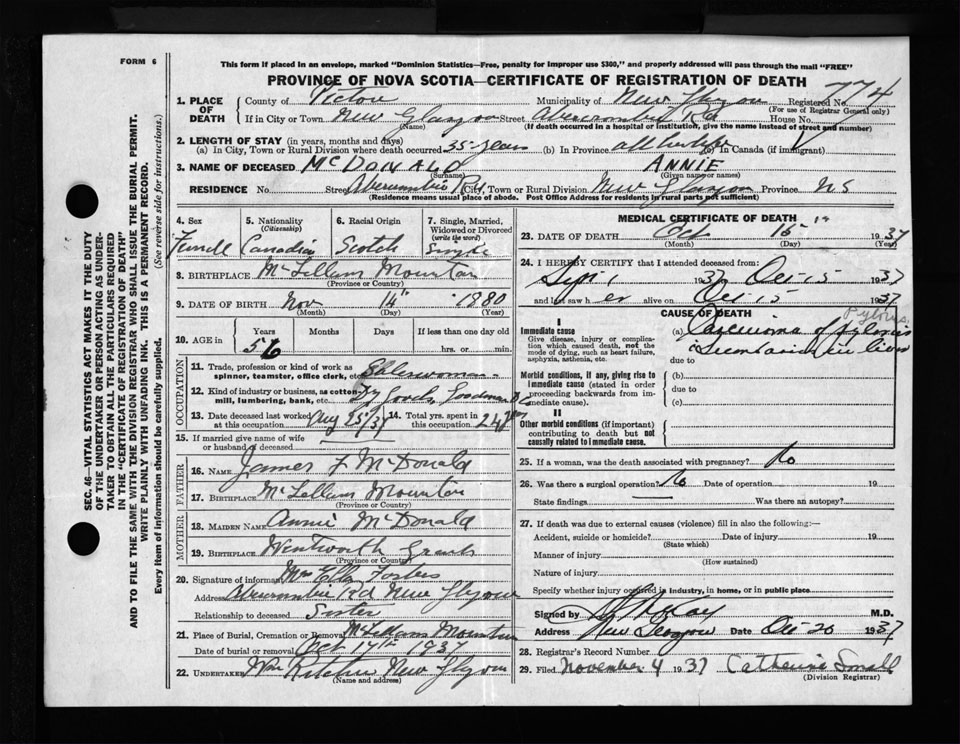 FORM 6
This form if placed in an envelope, marked "Dominion Statistics—Free, penalty for improper use $300," and properly addressed will pass through the mail "FREE"
PROVINCE OF NOVA SCOTIA—CERTIFICATE OF REGISTRATION OF DEATH
SEC. 46—VITAL STATISTICS ACT MAKES IT THE DUTY
OF THE UNDERTAKER OR PERSON ACTING AS UNDER-
TAKER TO OBTAIN ALL THE PARTICULARS REQUIRED
IN THE "CERTIFICATE OF REGISTRATION OF DEATH"
AND TO FILE THE SAME WITH THE DIVISION REGISTRAR WHO SHALL ISSUE THE BURIAL PERMIT.
WRITE PLAINLY WITH UNFADING INK. THIS IS A PERMANENT RECORD.
Every item of Information should be carefully supplied. (See reverse side for instructions.)
1. PLACE OF DEATH
County of Pictou Municipality of New Glasgow Registered No. 774
(For use of Registrar General only)
If in City or Town New Glasgow Street Abercrombie Rd House No.
(Name) (If death occurred in a hospital or institution, give the name instead of street and number)
2. LENGTH OF STAY (in years, months and days)
(a) In City, Town or Rural Division where death occurred 35 years (b) In Province all her life (c) In Canada (if immigrant)
3. NAME OF DECEASED McDONALD ANNIE
(Surname) (Given name or names)
RESIDENCE No. Street Abercrombie Rd. City, Town or Rural Division New Glasgow Province NS
(Residence means usual place of abode. Post Office Address for residents in rural parts not sufficient)
4. Sex Female
5. Nationality (Citizenship) Canadian
6. Racial Origin Scotch
7. Single, Married, Widowed or Divorced (write the word) Single
8. BIRTHPLACE McLellans Mountain
(Province or Country)
9. DATE OF BIRTH Nov 14th 1880
(Month) (Day) (Year)
10. AGE in Years Months Days If less than one day old
56 hrs. or min.
OCCUPATION
11. Trade, profession or kind of work as spinner, teamster, office clerk, etc. Saleswoman
12. Kind of industry or business, as cotton-mill, lumbering, bank, etc. Dry Goods Goodman Co
13. Date deceased last worked at this occupation Aug 25/37
14. Total yrs. spent in this occupation 24 yrs
15. If married give name of wife or husband of deceased
FATHER
16. NAME James F McDonald
17. BIRTHPLACE McLellans Mountain
(Province or Country)
MOTHER
18. MAIDEN NAME Annie McDonald
19. BIRTHPLACE Wentworth Grant
(Province or Country)
20. Signature of informant Mrs Ella Forbes
Address Abercrombie Rd New Glasgow
Relationship to deceased Sister
21. Place of Burial, Cremation or Removal McLellans Mountain
Date of burial or removal Oct 17th 1937
22. UNDERTAKER Wm Ritchie New Glasgow
(Name and address)
MEDICAL CERTIFICATE OF DEATH
23. DATE OF DEATH Oct 15th 1937
(Month) (Day) (Year)
24. I HEREBY CERTIFY that I attended deceased from:
Sept 1 1937 Oct 15 1937
and last saw her alive on Oct 15 1937
CAUSE OF DEATH
Pylorus
I
Immediate cause
Give disease, injury or complication which caused death, not the mode of dying, such as heart failure, asphyxia, asthenia, etc.
(a) Carcinoma of pylorus
Secondaries in liver
due to
Morbid conditions, if any, giving rise to immediate cause (stated in order proceeding backwards from immediate cause).
(b)
due to
(c)
II
Other morbid conditions (if important) contributing to death but not causally related to immediate cause.
25. If a woman, was the death associated with pregnancy? No
26. Was there a surgical operation? No Date of operation 19
State findings Was there an autopsy?
27. If death was due to external causes (violence) fill in also the following:—
Accident, suicide or homicide? Date of injury 19
(State which)
Manner of injury
(How sustained)
Nature of injury
Specify whether injury occurred in industry, in home, or in public place
Signed by M.D.
Address New Glasgow Date Oct 20 1937
28. Registrar's Record Number
29. Filed November 4 1937 Catherine Small
(Division Registrar)